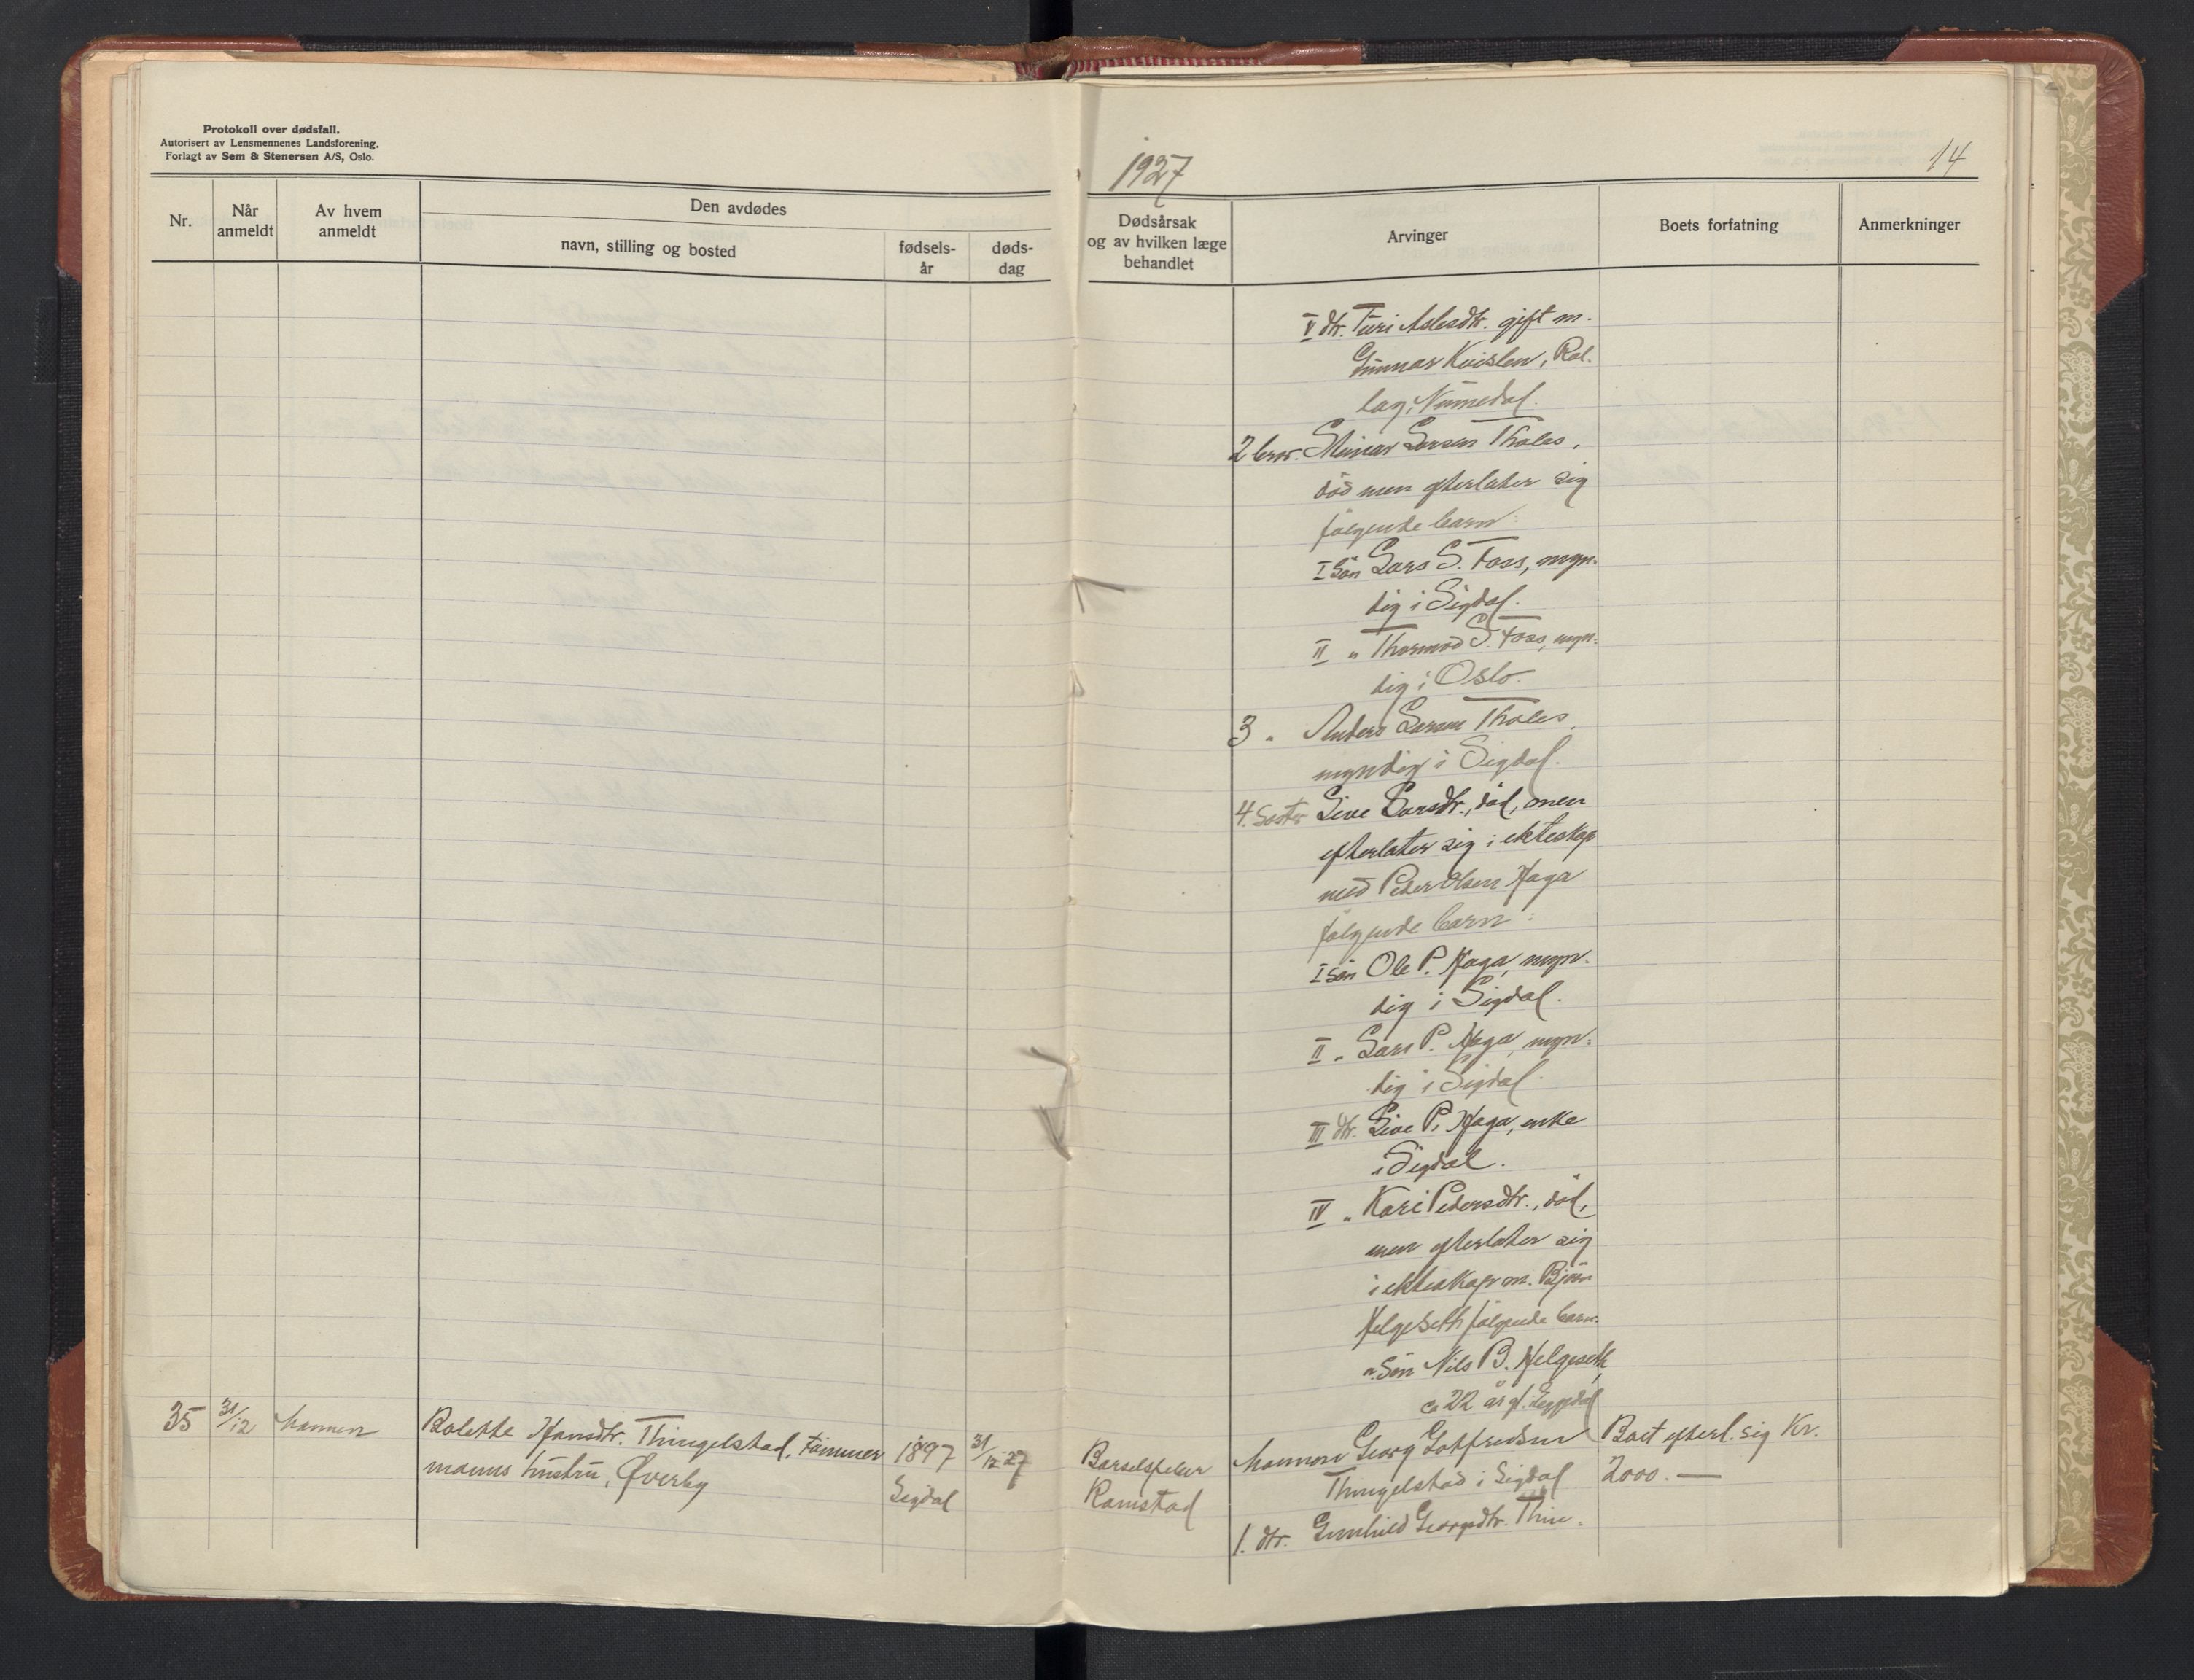 Protokoll over dødsfall.
Autorisert av Lensmennenes Landsforening.
Forlagt av Sem & Stenersen A/S, Oslo.
1927
14
Nr.
Når
anmeldt
Av hvem
anmeldt
Den avdødes
navn, stilling og bosted
fødsels-
år
døds-
dag
Dødsårsak
og av hvilken læge
behandlet
Arvinger
Boets forfatning
Anmerkninger
V dtr. Turi Aslesdtr. gift m.
Gunnar Kvislen, Rol-
lag, Numedal.
2 bror. Steinar Larsen Thales,
död men efterlater sig
følgende barn:
I Sön Lars S. Foss, myn-
dig i Sigdal.
II " Thormod S. Foss, myn-
dig i Oslo.
3 " Anders Larsen Thales,
myndig i Sigdal.
4. Søster Live Larsdtr., död, men
efterlater sig i ekteskap
med Peder Olsen Haga
følgende barn:
I sön Ole P. Haga, myn-
dig i Sigdal.
II " Lars P. Haga, myn-
dig i Sigdal.
III dtr. Live P. Haga, enke
i Sigdal.
IV " Kari Pedersdtr., död,
men efterlater sig
i ekteskap m. Björn
Helgeseth følgende barn:
a. Sön Nils B. Helgeseth,
ca 22 år gl. Eggedal
35 31/12 Mannen Bolette Hansdtr. Thingelstad, tømmer
manns hustru, Øverby
1897
Sigdal
31/12 27
Barselfeber
Ramstad
Mannen Georg Gotfredsen
Thingelstad i Sigdal
1. dtr. Gunhild Georgsdtr. Thin-
Boet efterl. sig Kr.
2000.—